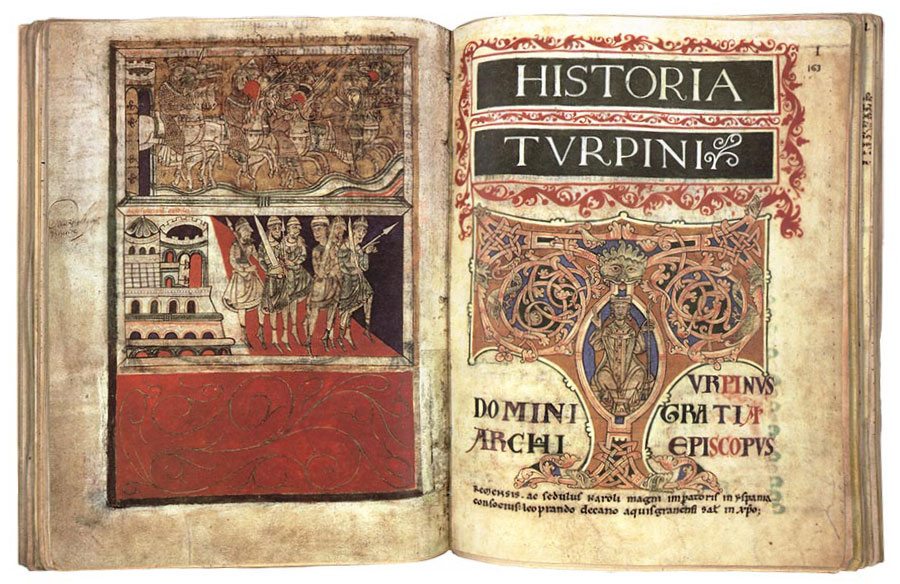 I
163
HISTORIA
TVRPINI
TVRPINVS
DOMINI GRATIA
ARCHI EPISCOPVS
Remensis. ac sedulus karoli magni impatoris in yspania
consocius leoprando decano aquisgranensi salt in xpo;